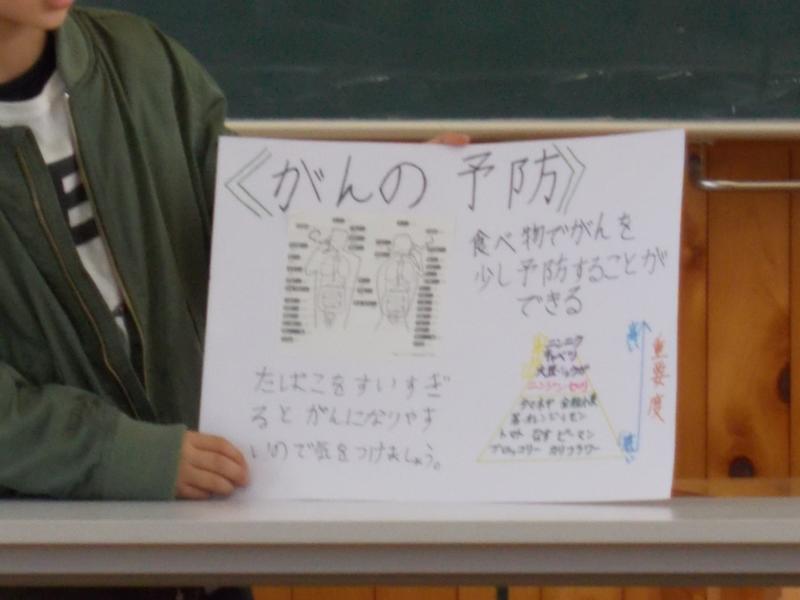 《がんの予防》
食べ物でがんを
少し予防することが
できる
たばこをすいすぎ
るとがんになりやす
いので気をつけましょう。
ニンニク
キャベツ
大豆・ショウガ
ニンジン・セロリ
タマネギ 全粒小麦
茶・オレンジ・レモン
トマト なす ピーマン
ブロッコリー カリフラワー
高い
重要度
低い